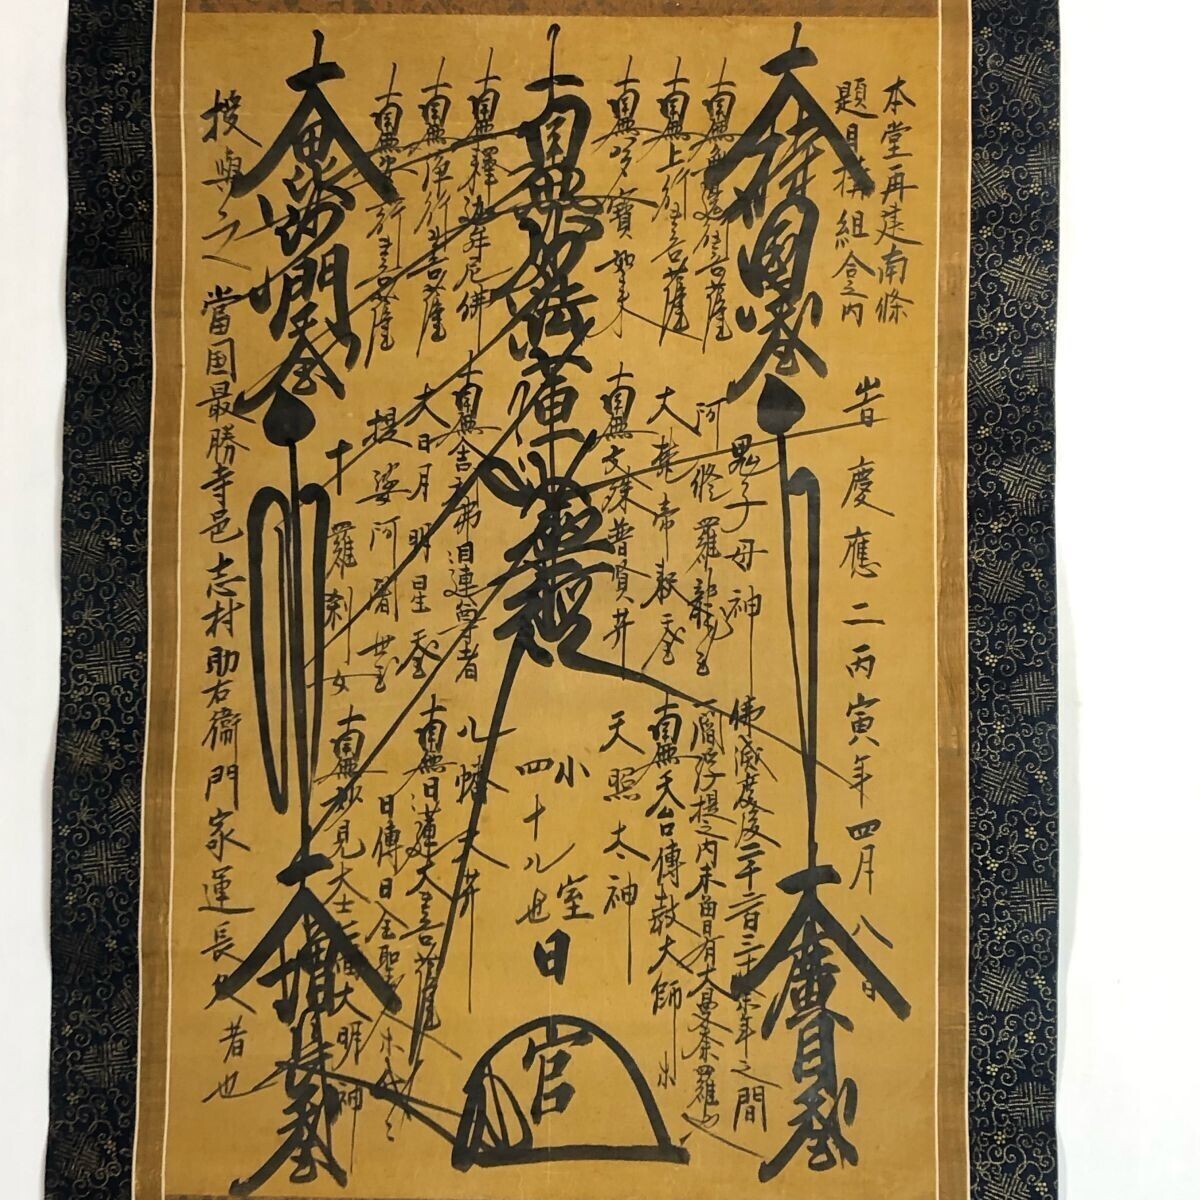 本堂再建南條
題目講組合之内
旹慶應二丙寅年四月八日
大持国天王
大廣目天王
南無無邊行菩薩
南無上行菩薩
南無多寶如来
鬼子母神
阿修羅龍王
大龍帝釈天王
南無文殊普賢菩薩
佛滅度後二千二百三十余年之間
一閻浮提之内未曽有大曼荼羅也
南無天台傳教大師
天照太神
南無妙法蓮華経
小室
四十八世
日官
南無釋迦牟尼佛
南無浄行菩薩
南無安立行菩薩
南無舎利弗目連尊者
大日月明星天王
提婆阿闍世王
十羅刹女
八幡大菩薩
南無日蓮大菩薩
日傳日全聖人
南無妙見大士
大明神
大毘沙門天王
大増長天王
授與之
當国最勝寺邑志村助右衛門家運長久者也